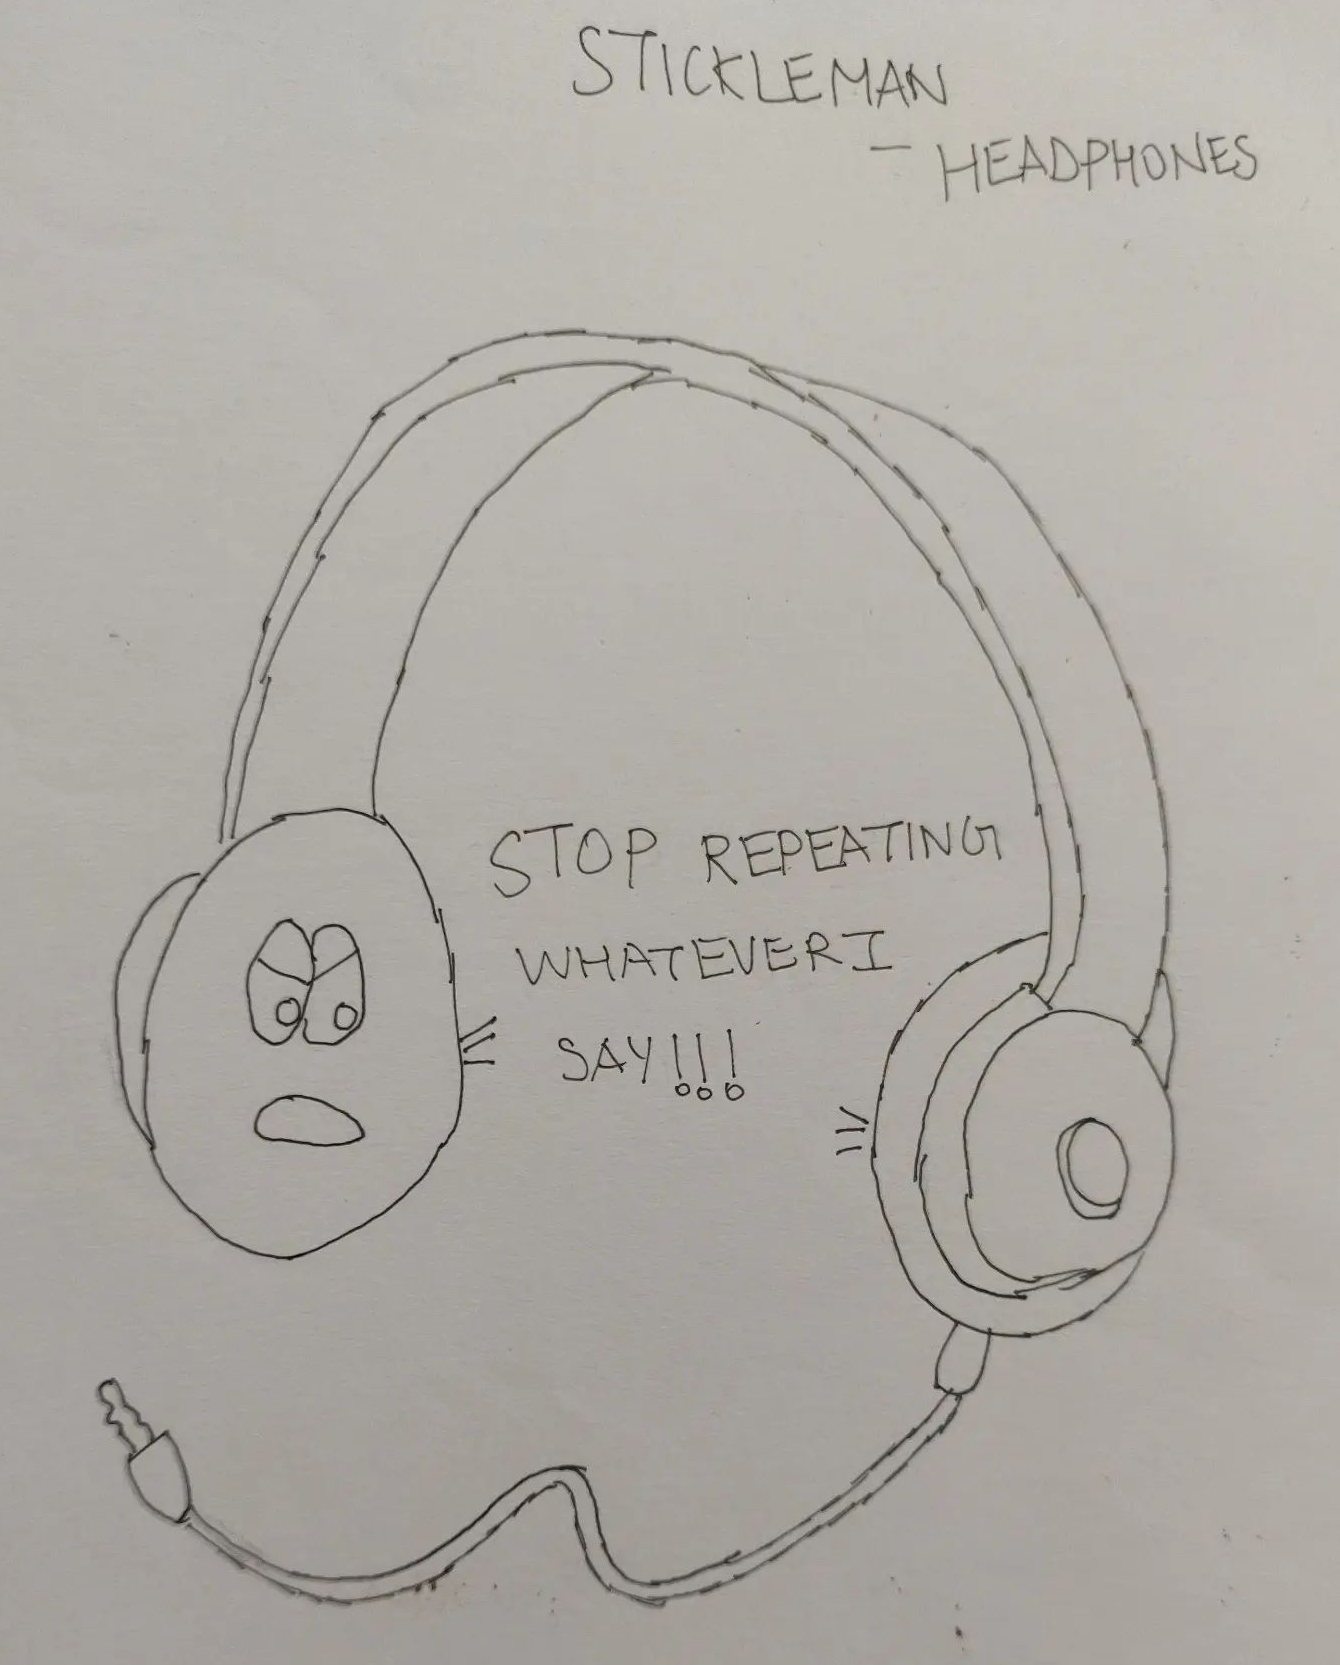 STICKLEMAN
- HEADPHONES
STOP REPEATING
WHATEVER I
SAY!!!